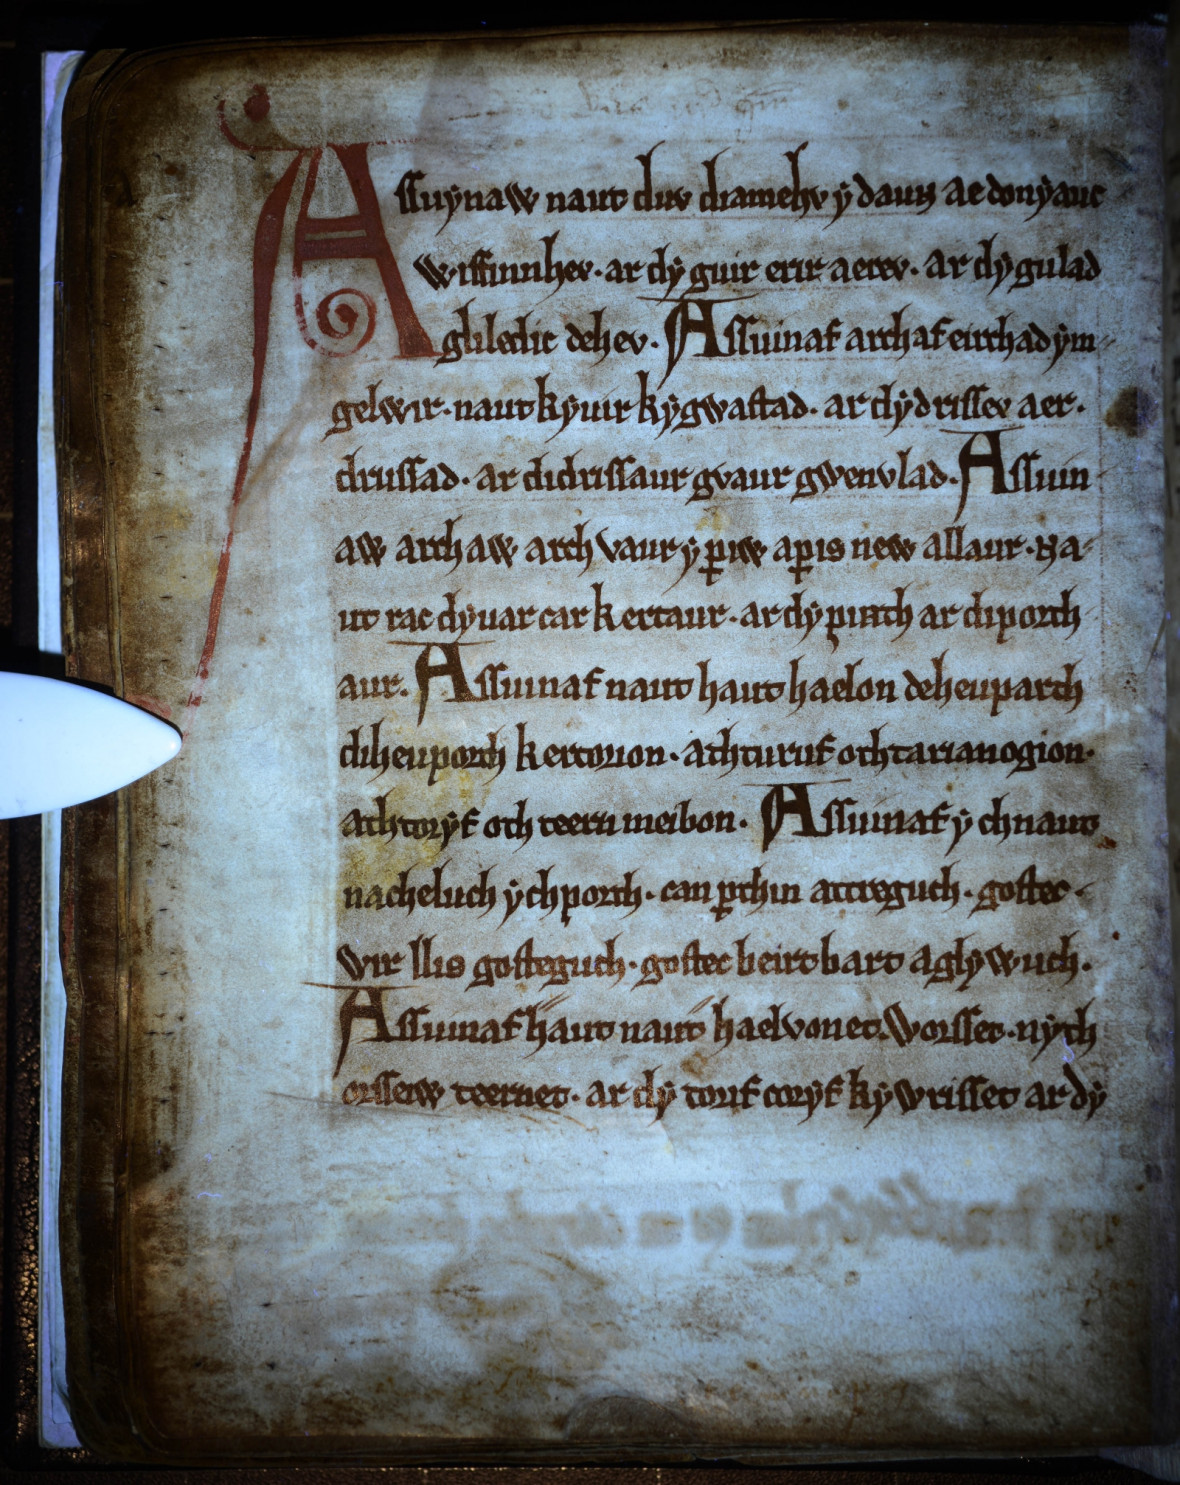 Assuynaw naut duv diamehv y daun ae donyauc
wissuinhev. ar dy guir erir aerev. ar dy gulad
gliledic dehev. Assuinaf archaf eirchad ym-
gelwir. naut kyuir kygwastad. ar dy drissev aer.
drussad. ar didrissaur gvaur gwenvlad. Assuin
aw archaw arch vaur y periw aperis new allaur. Na-
ut rac dy uar car kertaur. ar dy pirrth ar diporth
aur. Assuinaf naut haut haelon deheuparth
diheuporth kertorion. athturuf othtarianogion.
athtoryf oth teern meibon. Assuinaf y chnaut
nacheluch ychporth. can perthin attreguch. gostec-
wir llis gosteguch. gostec beirt bart aglywuch.
Assuinaf haut naut haelvonet. Worsset. nyth
orsseiw teernet. ar dy toruf toryf kywrisset ar dy